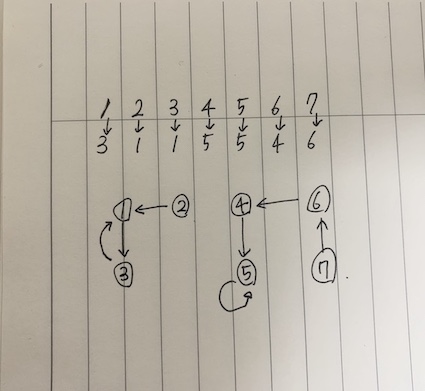 1 2 3 4 5 6 7
↓ ↓ ↓ ↓ ↓ ↓ ↓
3 1 1 5 5 4 6
1 ← 2 4 ← 6
3 5 7